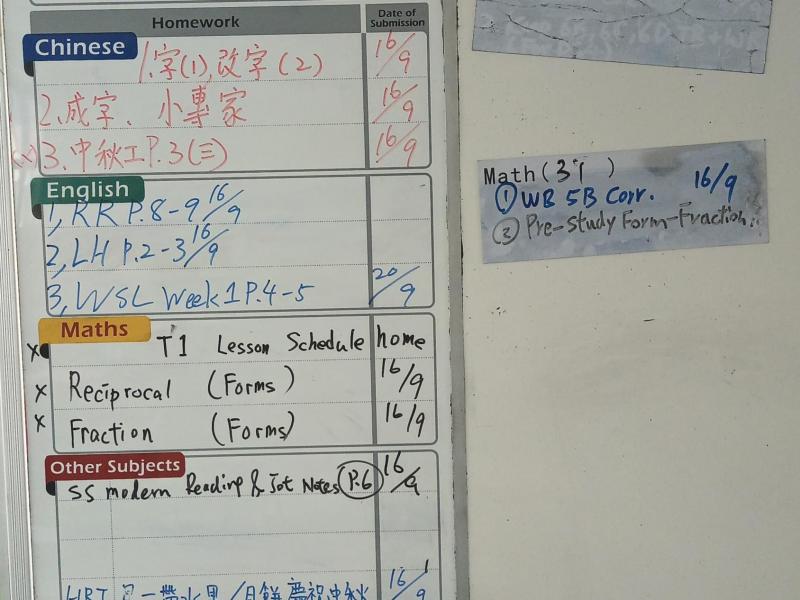 Homework Date of Submission
Chinese
1.字(1),改字(2) 16/9
2.成字、小專家 16/9
(x)3.中秋工P.3(三) 16/9
English
1, RR P.8-9 16/9
2, LH P.2-3 16/9
3, WSL Week1 P.4-5 20/9
Maths
x T1 Lesson Schedule home
x Reciprocal (Forms) 16/9
x Fraction (Forms) 16/9
Other Subjects
SS modern Reading & Jot Notes (P.6) 16/9
一帶水果/月餅慶祝中秋 16/9
Math(
① WB 5B Corr. 16/9
② Pre-Study Form-Fraction